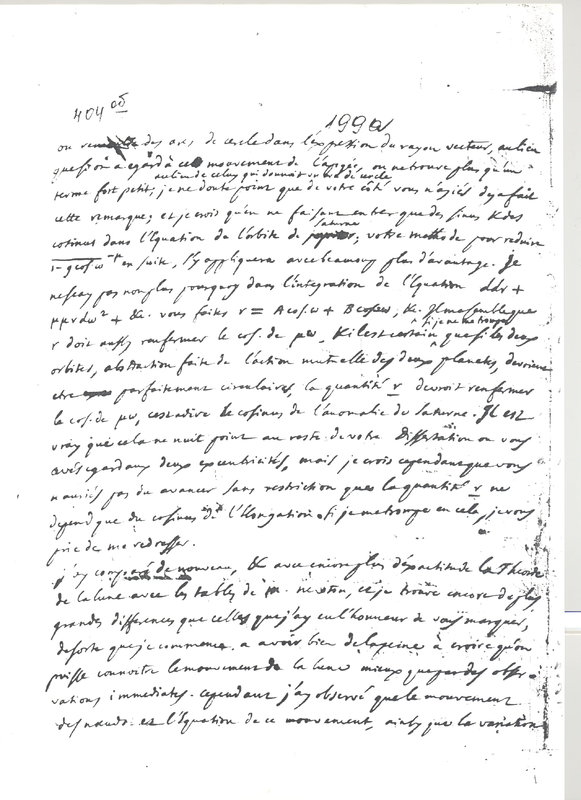 404 od
199a
ou des arcs de cercle dans l'expression du rayon vecteur, au lieu
qu'en ayant égard à ce mouvement de l'apogée, on ne trouve plus qu'un
au lieu de celuy qui donnoit un arc de cercle
terme fort petit, je ne doute point que de votre côté vous n'ayiés deja fait
cette remarque; et je crois qu'en ne faisant entrer que des sinus & des
saturne
cosinus dans l'Equation de l'orbite de jupiter, votre methode pour reduire
1-gcos.ω en suite, s'y appliquera avec beaucoup plus d'avantage. Je
ne sçay pas non plus pourquoy dans l'integration de l'Equation ddr +
μμrdω² + &c. vous faites r = A cos.ω + B cos2ω, &c. Il me semble que
si je ne me trompe
r doit aussi renfermer le cos. de μω, & il est certain que si les deux
orbites, abstraction faite de l'action mutuelle des deux planetes, devoient
etre parfaitement circulaires, la quantité r devroit renfermer
le cos. de μω, c'est a dire le cosinus de l'anomalie de saturne. Il est
vray que cela ne nuit point au reste de votre Dissertation ou vous
avés egard aux deux excentricités, mais je crois cependant que vous
n'auriés pas du avancer sans restriction que la quantité r ne
depend que du cosinus de l'Elongation. Si je me trompe en cela, je vous
prie de me redresser.
j'ay comparé de nouveau, & avec encor plus d'exactitude la Theorie
de la lune avec les tables de M. newton, et je trouve encore de plus
grandes differences que celles que j'ay eu l'honneur de vous marquer,
de sorte que je commence a avoir bien de la peine à croire qu'on
puisse connoitre le mouvement de la lune mieux que par des obser-
vations immediates. cependant j'ay observé que le mouvement
des nœuds et l'Equation de ce mouvement, ainsy que la variation